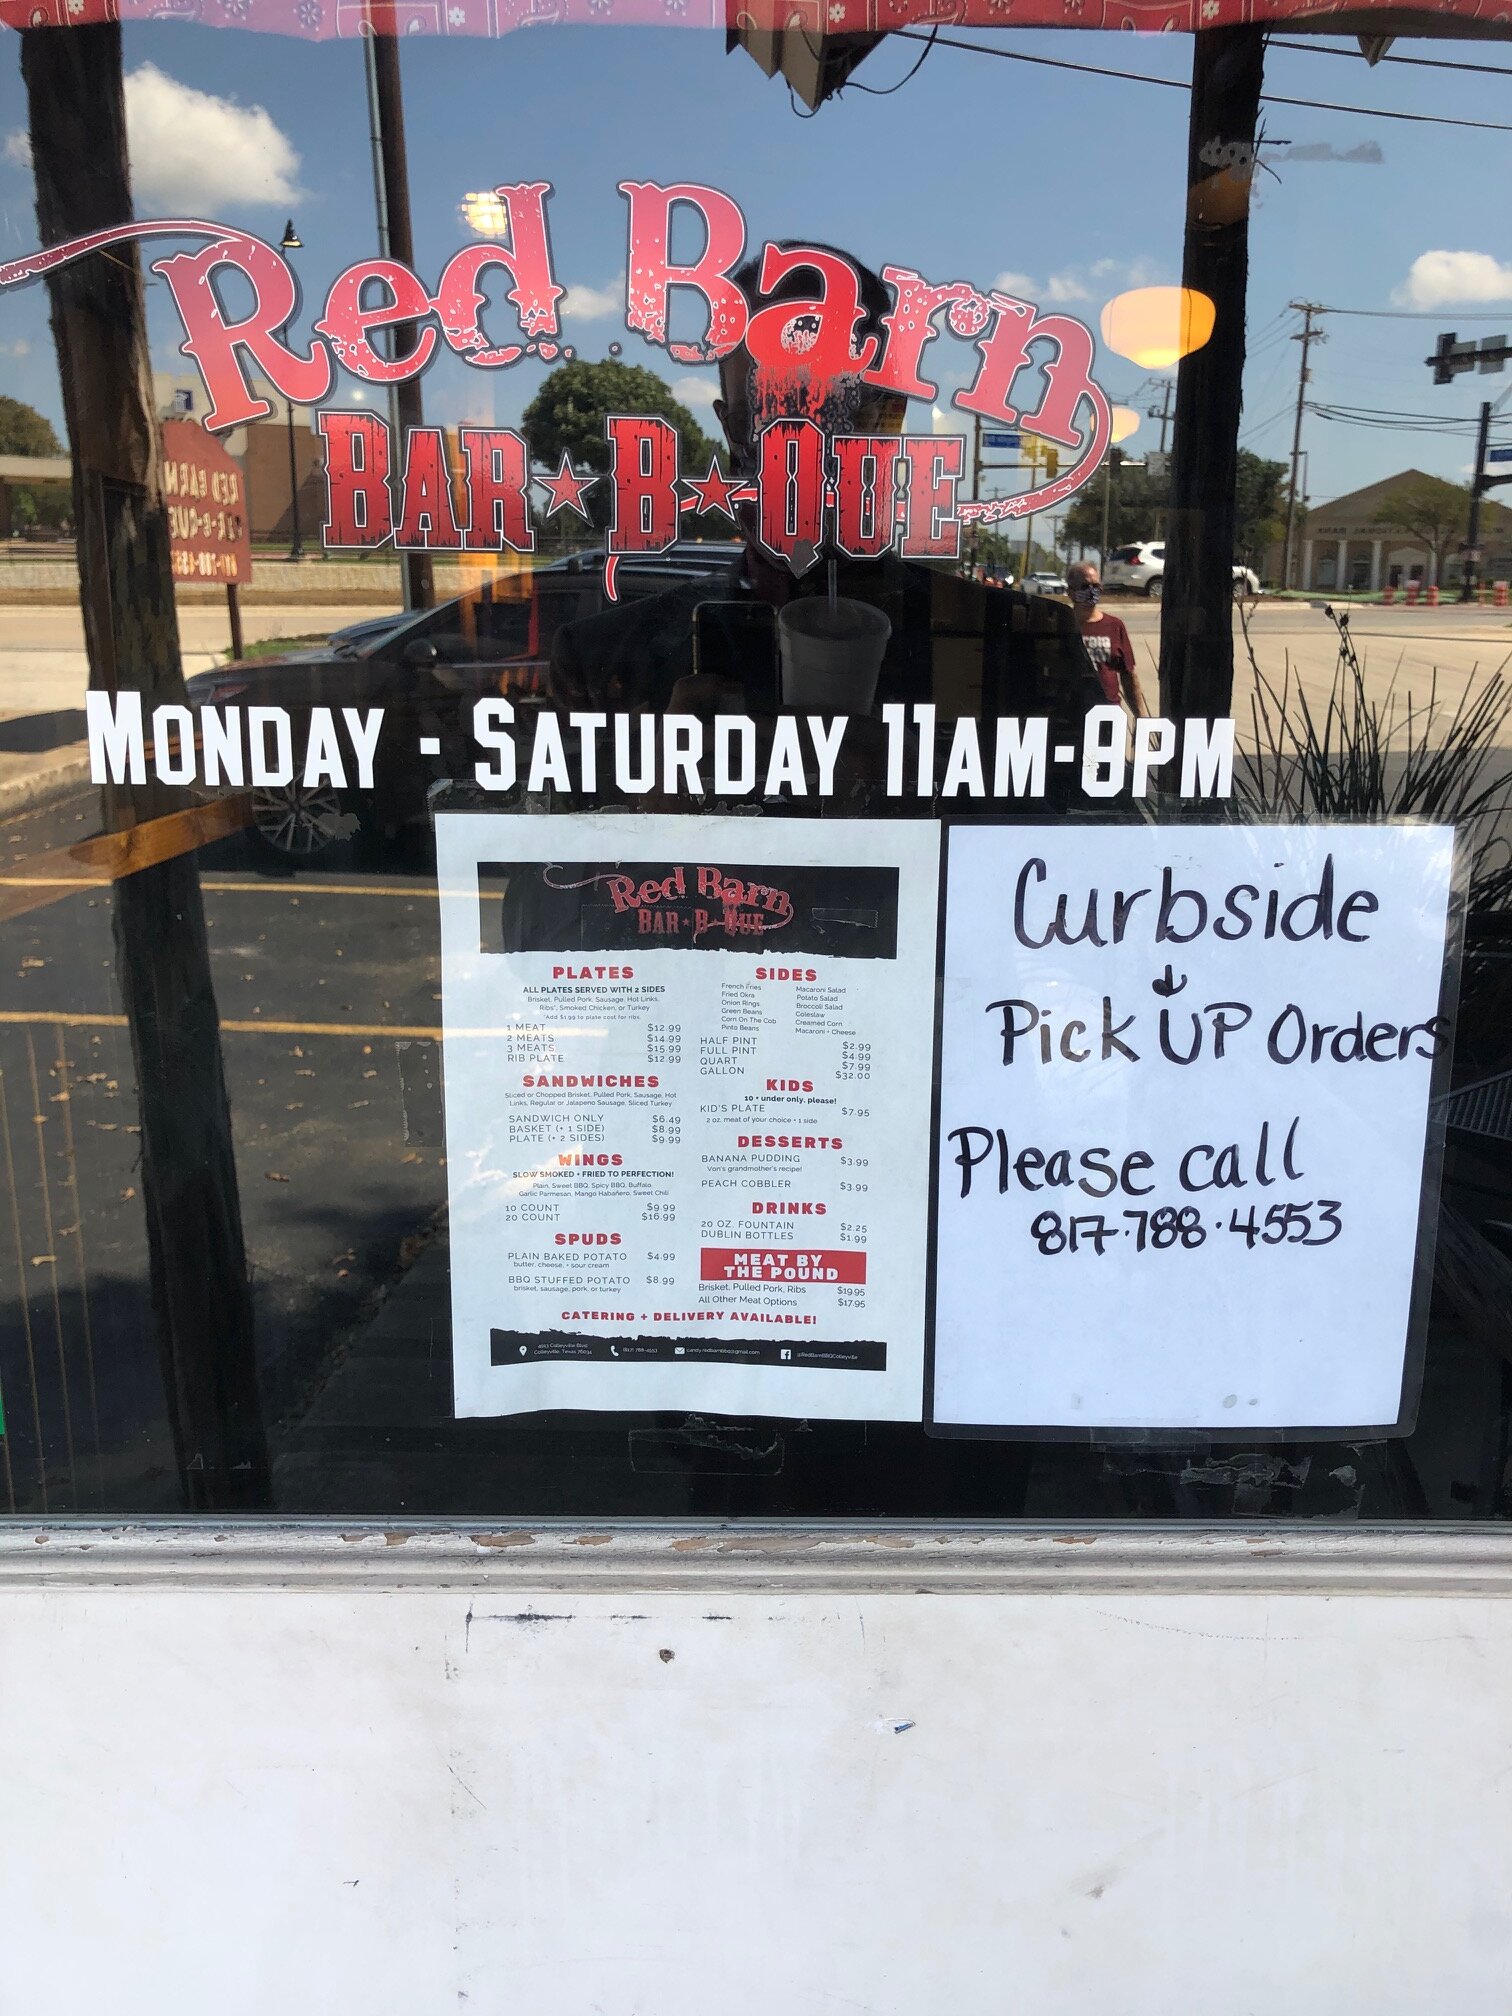 Red Barn
BAR★B★QUE
MONDAY - SATURDAY 11AM-8PM
Red Barn
BAR★B★QUE
PLATES
ALL PLATES SERVED WITH 2 SIDES
Brisket, Pulled Pork, Sausage, Hot Links,
Ribs*, Smoked Chicken, or Turkey
*Add $1.99 to plate cost for ribs.
1 MEAT $12.99
2 MEATS $14.99
3 MEATS $15.99
RIB PLATE $12.99
SANDWICHES
Sliced or Chopped Brisket, Pulled Pork, Sausage, Hot
Links, Regular or Jalapeno Sausage, Sliced Turkey
SANDWICH ONLY $6.49
BASKET (+ 1 SIDE) $8.99
PLATE (+ 2 SIDES) $9.99
WINGS
SLOW SMOKED + FRIED TO PERFECTION!
Plain, Sweet BBQ, Spicy BBQ, Buffalo,
Garlic Parmesan, Mango Habañero, Sweet Chili
10 COUNT $9.99
20 COUNT $16.99
SPUDS
PLAIN BAKED POTATO $4.99
butter, cheese, + sour cream
BBQ STUFFED POTATO $8.99
brisket, sausage, pork, or turkey
SIDES
French Fries
Fried Okra
Onion Rings
Green Beans
Corn On The Cob
Pinto Beans
Macaroni Salad
Potato Salad
Broccoli Salad
Coleslaw
Creamed Corn
Macaroni + Cheese
HALF PINT $2.99
FULL PINT $4.99
QUART $7.99
GALLON $32.00
KIDS
10 + under only, please!
KID'S PLATE $7.95
2 oz. meat of your choice + 1 side
DESSERTS
BANANA PUDDING $3.99
Von's grandmother's recipe!
PEACH COBBLER $3.99
DRINKS
20 OZ. FOUNTAIN $2.25
DUBLIN BOTTLES $1.99
MEAT BY
THE POUND
Brisket, Pulled Pork, Ribs $19.95
All Other Meat Options $17.95
CATERING + DELIVERY AVAILABLE!
4913 Colleyville Blvd.
Colleyville, Texas 76034
(817) 788-4553
candy.redbarnbbq@gmail.com
@RedBarnBBQColleyville
Curbside
&
Pick UP Orders
Please call
817.788.4553
RED BARN
B-B-QUE
817-788-4553